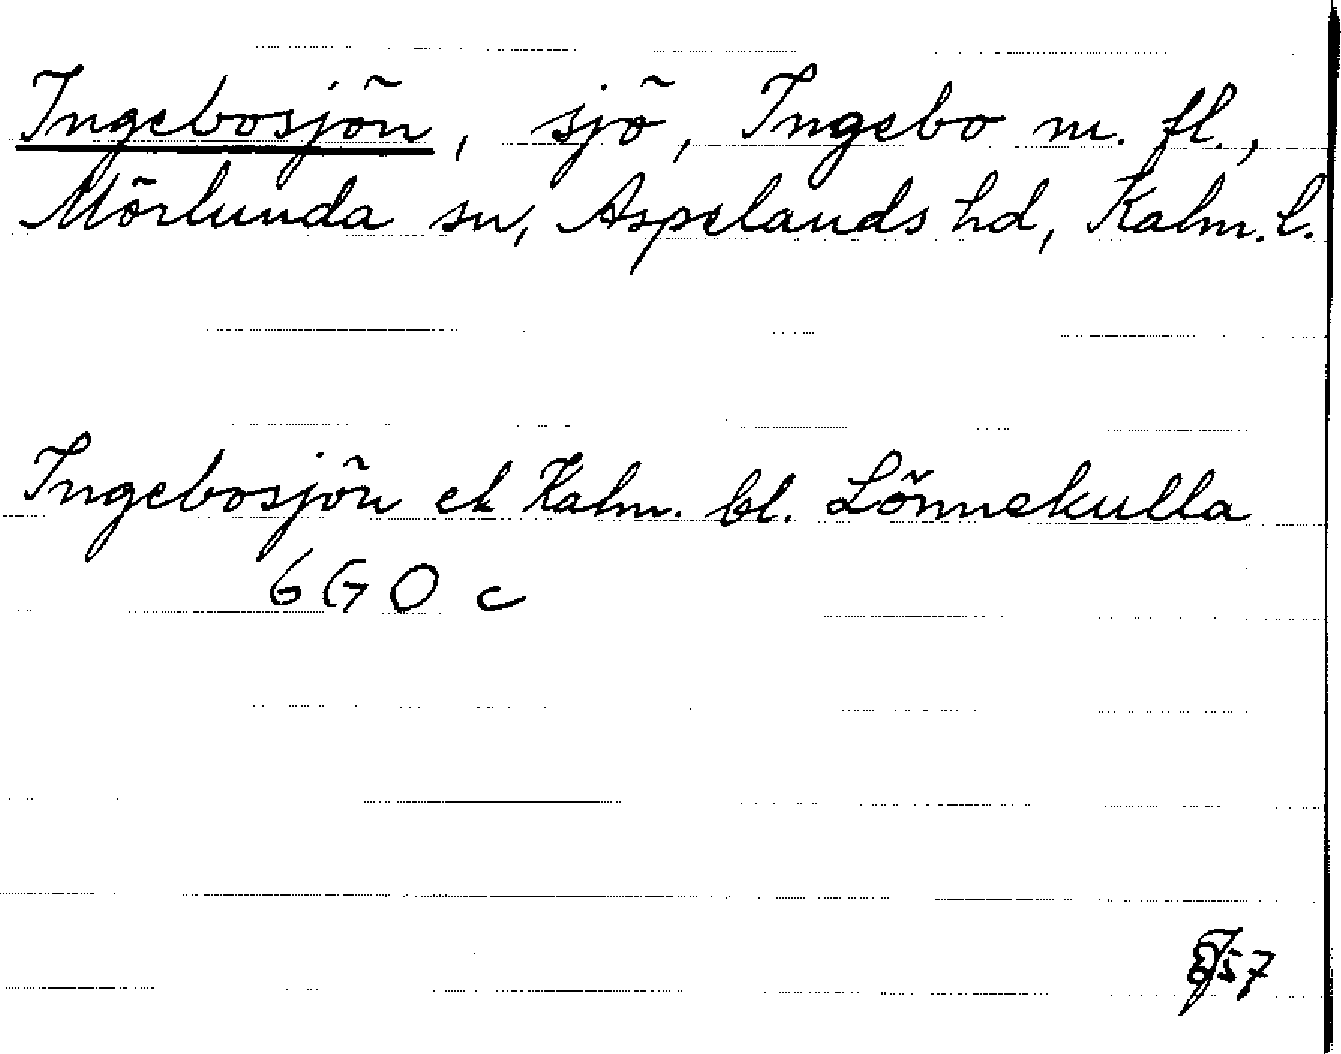 Ingebosjön, sjö, Ingebo m. fl.,
Mörlunda sn, Aspelands hd, Kalm. l.
Ingebosjön ek Kalm. bl. Lönnekulla
6 G O c
57